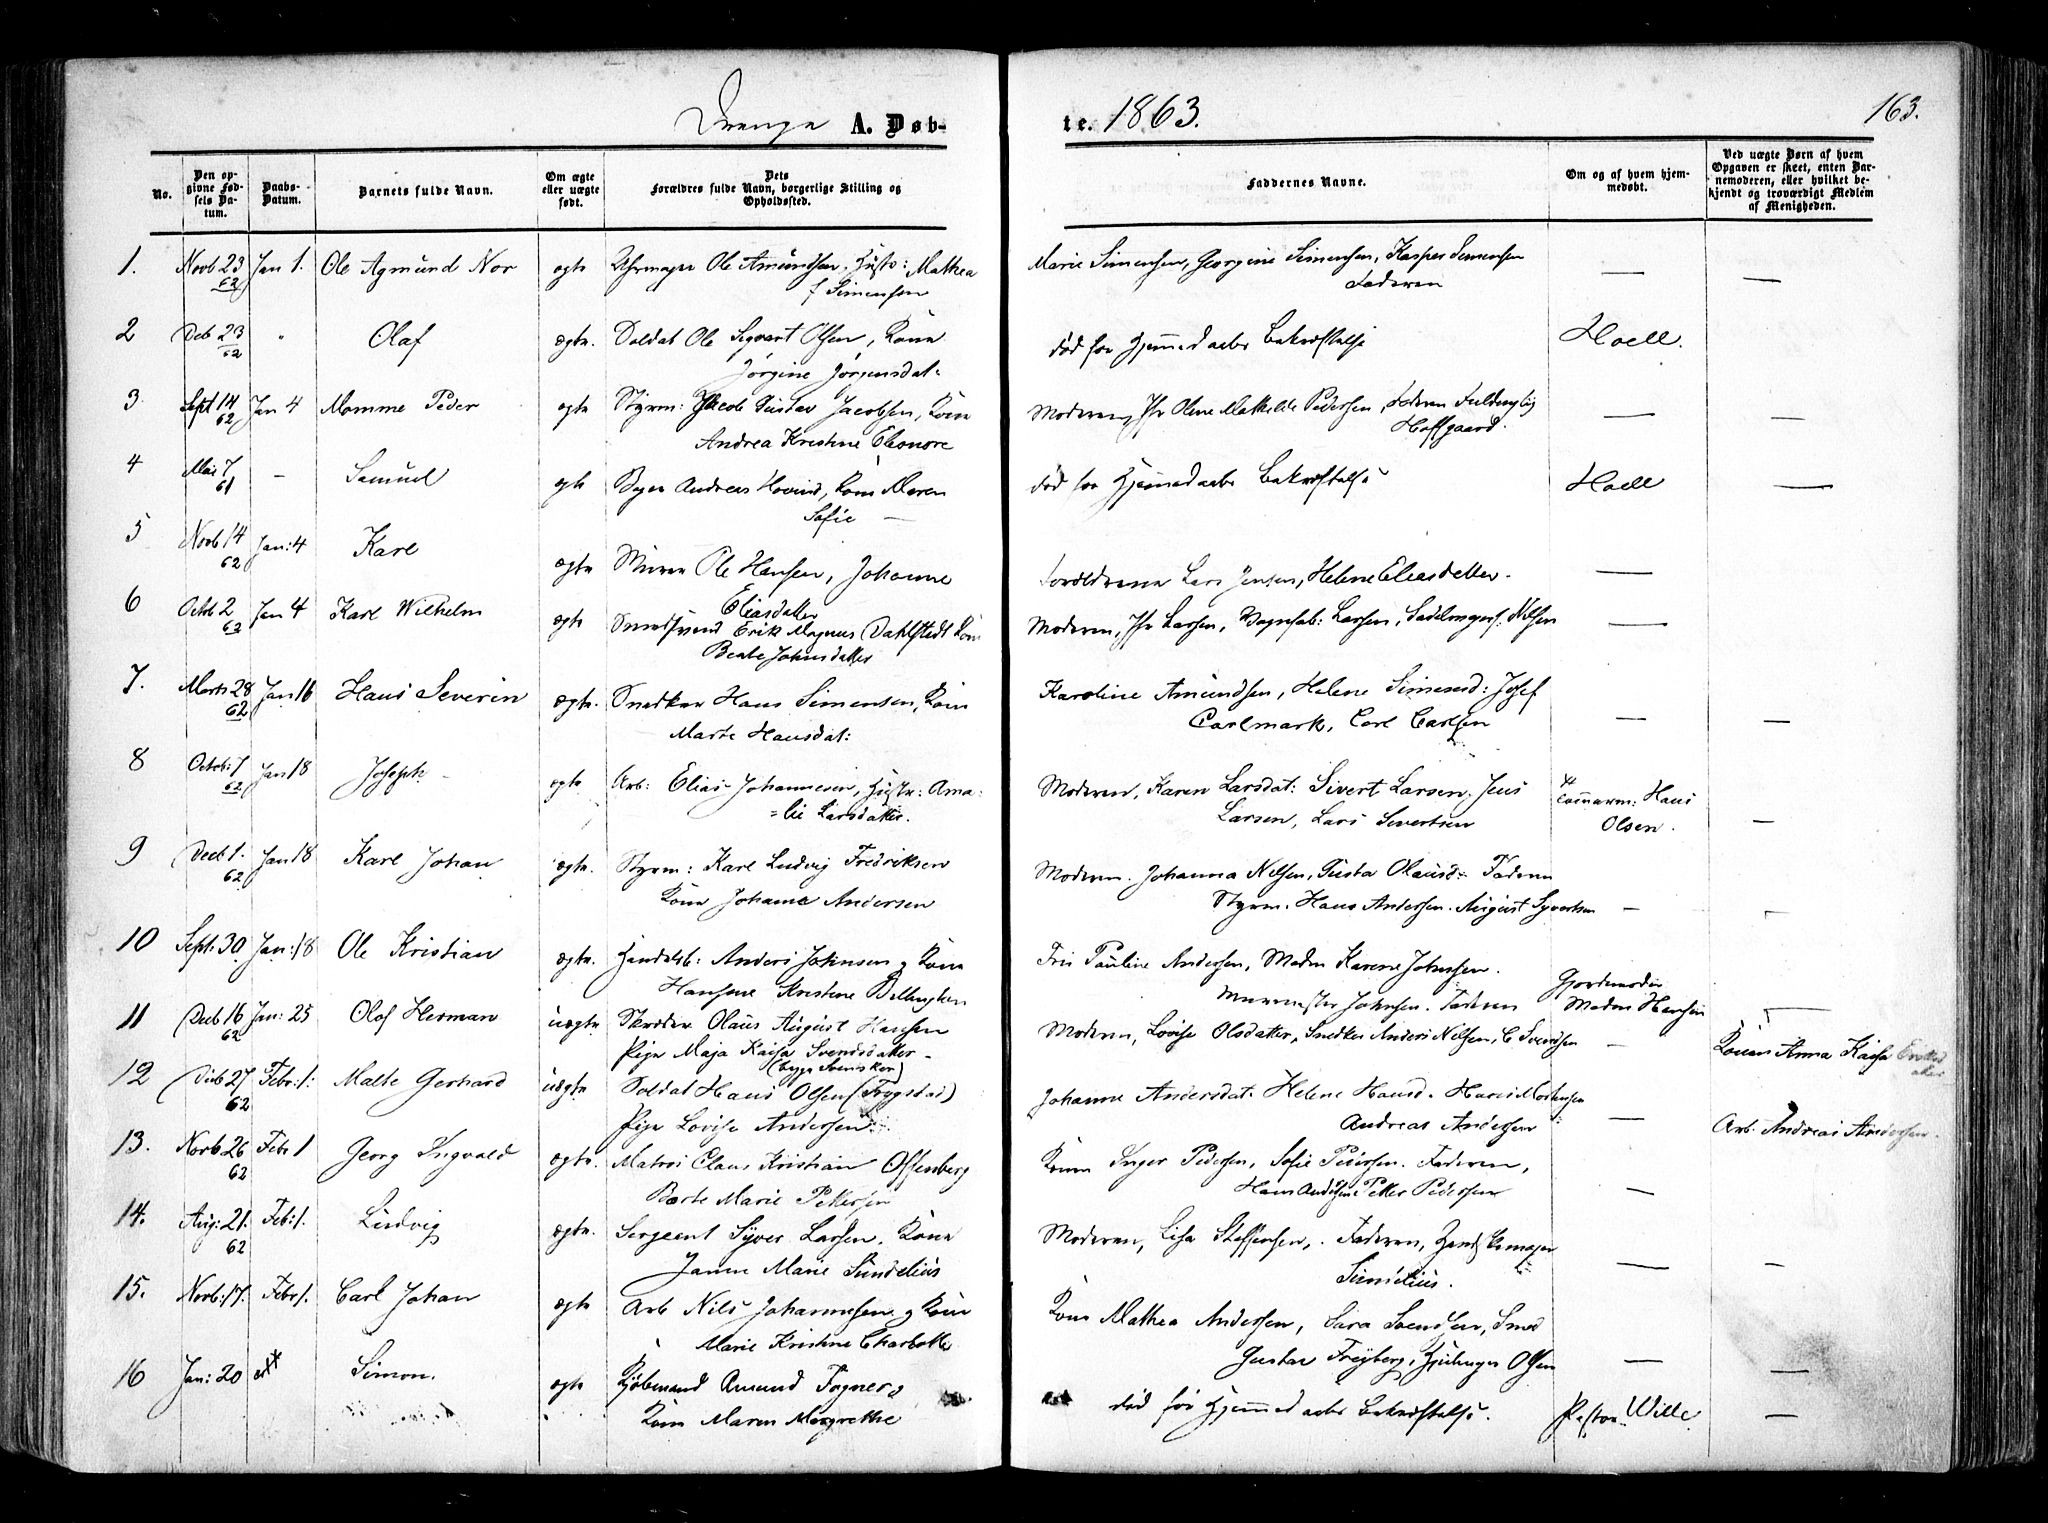 Drenge A. Døb-
te. 1863.
163.
No.
Den op-
givne Fød-
sels Da-
tum.
Daabs-
Datum.
Barnets fulde Navn.
Om ægte
eller uægte
født.
Dets
Forældres fulde Navn, borgerlige Stilling og
Opholdssted.
Faddernes Navne.
Om og af hvem hjem-
medøbt.
Ved uægte Børn af hvem
Opgaven er skeet, enten Bar-
nemoderen, eller hvilket be-
kjendt og troværdigt Medlem
af Menigheden.
1. Novb 23 Jan 1. Ole Agmund Nor ægte Uhrmager Ole Amundsen, Hustr: Mathea
62 f Simensen
Marie Simensen, Georgine Simensen, Kasper Simensen —
Faderen —
2 Deb 23 " Olaf ægte. Soldat Ole Segvart Olsen, Kone
62 Jørgine Jørgensdat:
død før Hjemmedaabs Bekræftelse Hoell.
3 Sept 14 Jan 4 Momme Peder ægte Styrm: Jacob Gustav Jacobsen, Kone
62 Andrea Kristine Eleonore
Moderen, Jfr Olene Mathilde Pedersen, Faderen Fuldmægtig —
Hoffgaard. —
4 Mai 7 - Samuel ægte Andreas Hovind, Kone Maren
61 Sofie —
død før Hjemmedaabs Bekræftelse Hoell —
5 Novb 14 Jan: 4 Karl ægte Murer Ole Hansen, Johanne
62 Eliasdatter
Forældrene Lars Jensen, Helene Eliasdatter. —
6 Octb 2 Jan 4 Karl Wilhelm ægte Smedsvend Erik Magnus Dahlstedt Kone
62 Beate Johnsdatter
Moderen, Jfr Larsen, Larsen, Nilsen —
7. Marts 28 Jan 16 Hans Severin ægte. Snedker Hans Simensen, Kone
62 Marte Hansdat:
Karoline Amundsen, Helene Simensd: Josef
Carlmark, Carl Carlsen — —
8 Octob: 7 Jan 18 Joseph ægte Arb: Elias Johannesen, Hustr: Ama-
62 =lie Larsdatter.
Moderen, Karen Larsdat: Sivert Larsen, Jens Hans
Larsen, Lars Sivertsen Olsen. —
9 Decb 1. Jan 18 Karl Johan ægte. Styrm: Karl Ludvig Fredriksen
62 Kone Johanne Andersen
Moderen. Johanna Nilsen, Gusta Olausd: Faderen
Styrm. Hans Andersen. August Syvertsen —
10 Sept: 30 Jan: 18 Ole Kristian ægte. Handelsb: Anders Johnsen & Kone
Kristine
Frk Pauline Andersen, Madm Karene Johnsen. Gjordemoder
Murmester Johnsen. Faderen Madm Hansen
11 Decb 16 Jan: 25 Olaf Herman uægte Skrædder Olaus August Hansen
62 Pige Maja Kaisa Svendsdatter
(begge Svensker)
Moderen, Lovise Olsdatter, Snedker Anders Nilsen, C Svendsen — Konen Anna Kaisa
12 Decb 27 Febr: 1: Malte Gerhard uægte Soldat Hans Olsen (Trygstad)
62 Pige Lovise Andersen
Johanne Andersdat: Helene Hansd. Hans Mortensen
Andreas Andersen — Arb. Andreas Andersen.
13. Novb 26 Feb 1 Georg Ingvald ægte. Matros Claus Kristian Offenberg
62 Berte Marie Pettersen
Konen Inger Pedersen, Sofie Pedersen. Faderen,
Hans Andersen Petter Pedersen —
14. Aug: 21. Feb: 1. Ludvig ægte. Sergeant Syver Larsen. Kone
62 Janne Marie Sundelius
Moderen, Lisa Steffensen,. Faderen, Handskemager
Sundelius. — —
15. Novb: 17. Febr 1. Carl Johan ægte Arb Nils Johannesen & Kone
Marie Kristine Charlotte
Kone Mathea Andersen, Sara Svendsen, Smed
Gustav Freyberg, Olsen —
16 Jan: 20 Simon. ægte Kjøbmand Amund Fogner &
Kone Maren Margrethe
død før Hjemmedaabs Bekræftelse. Pastor Wille —